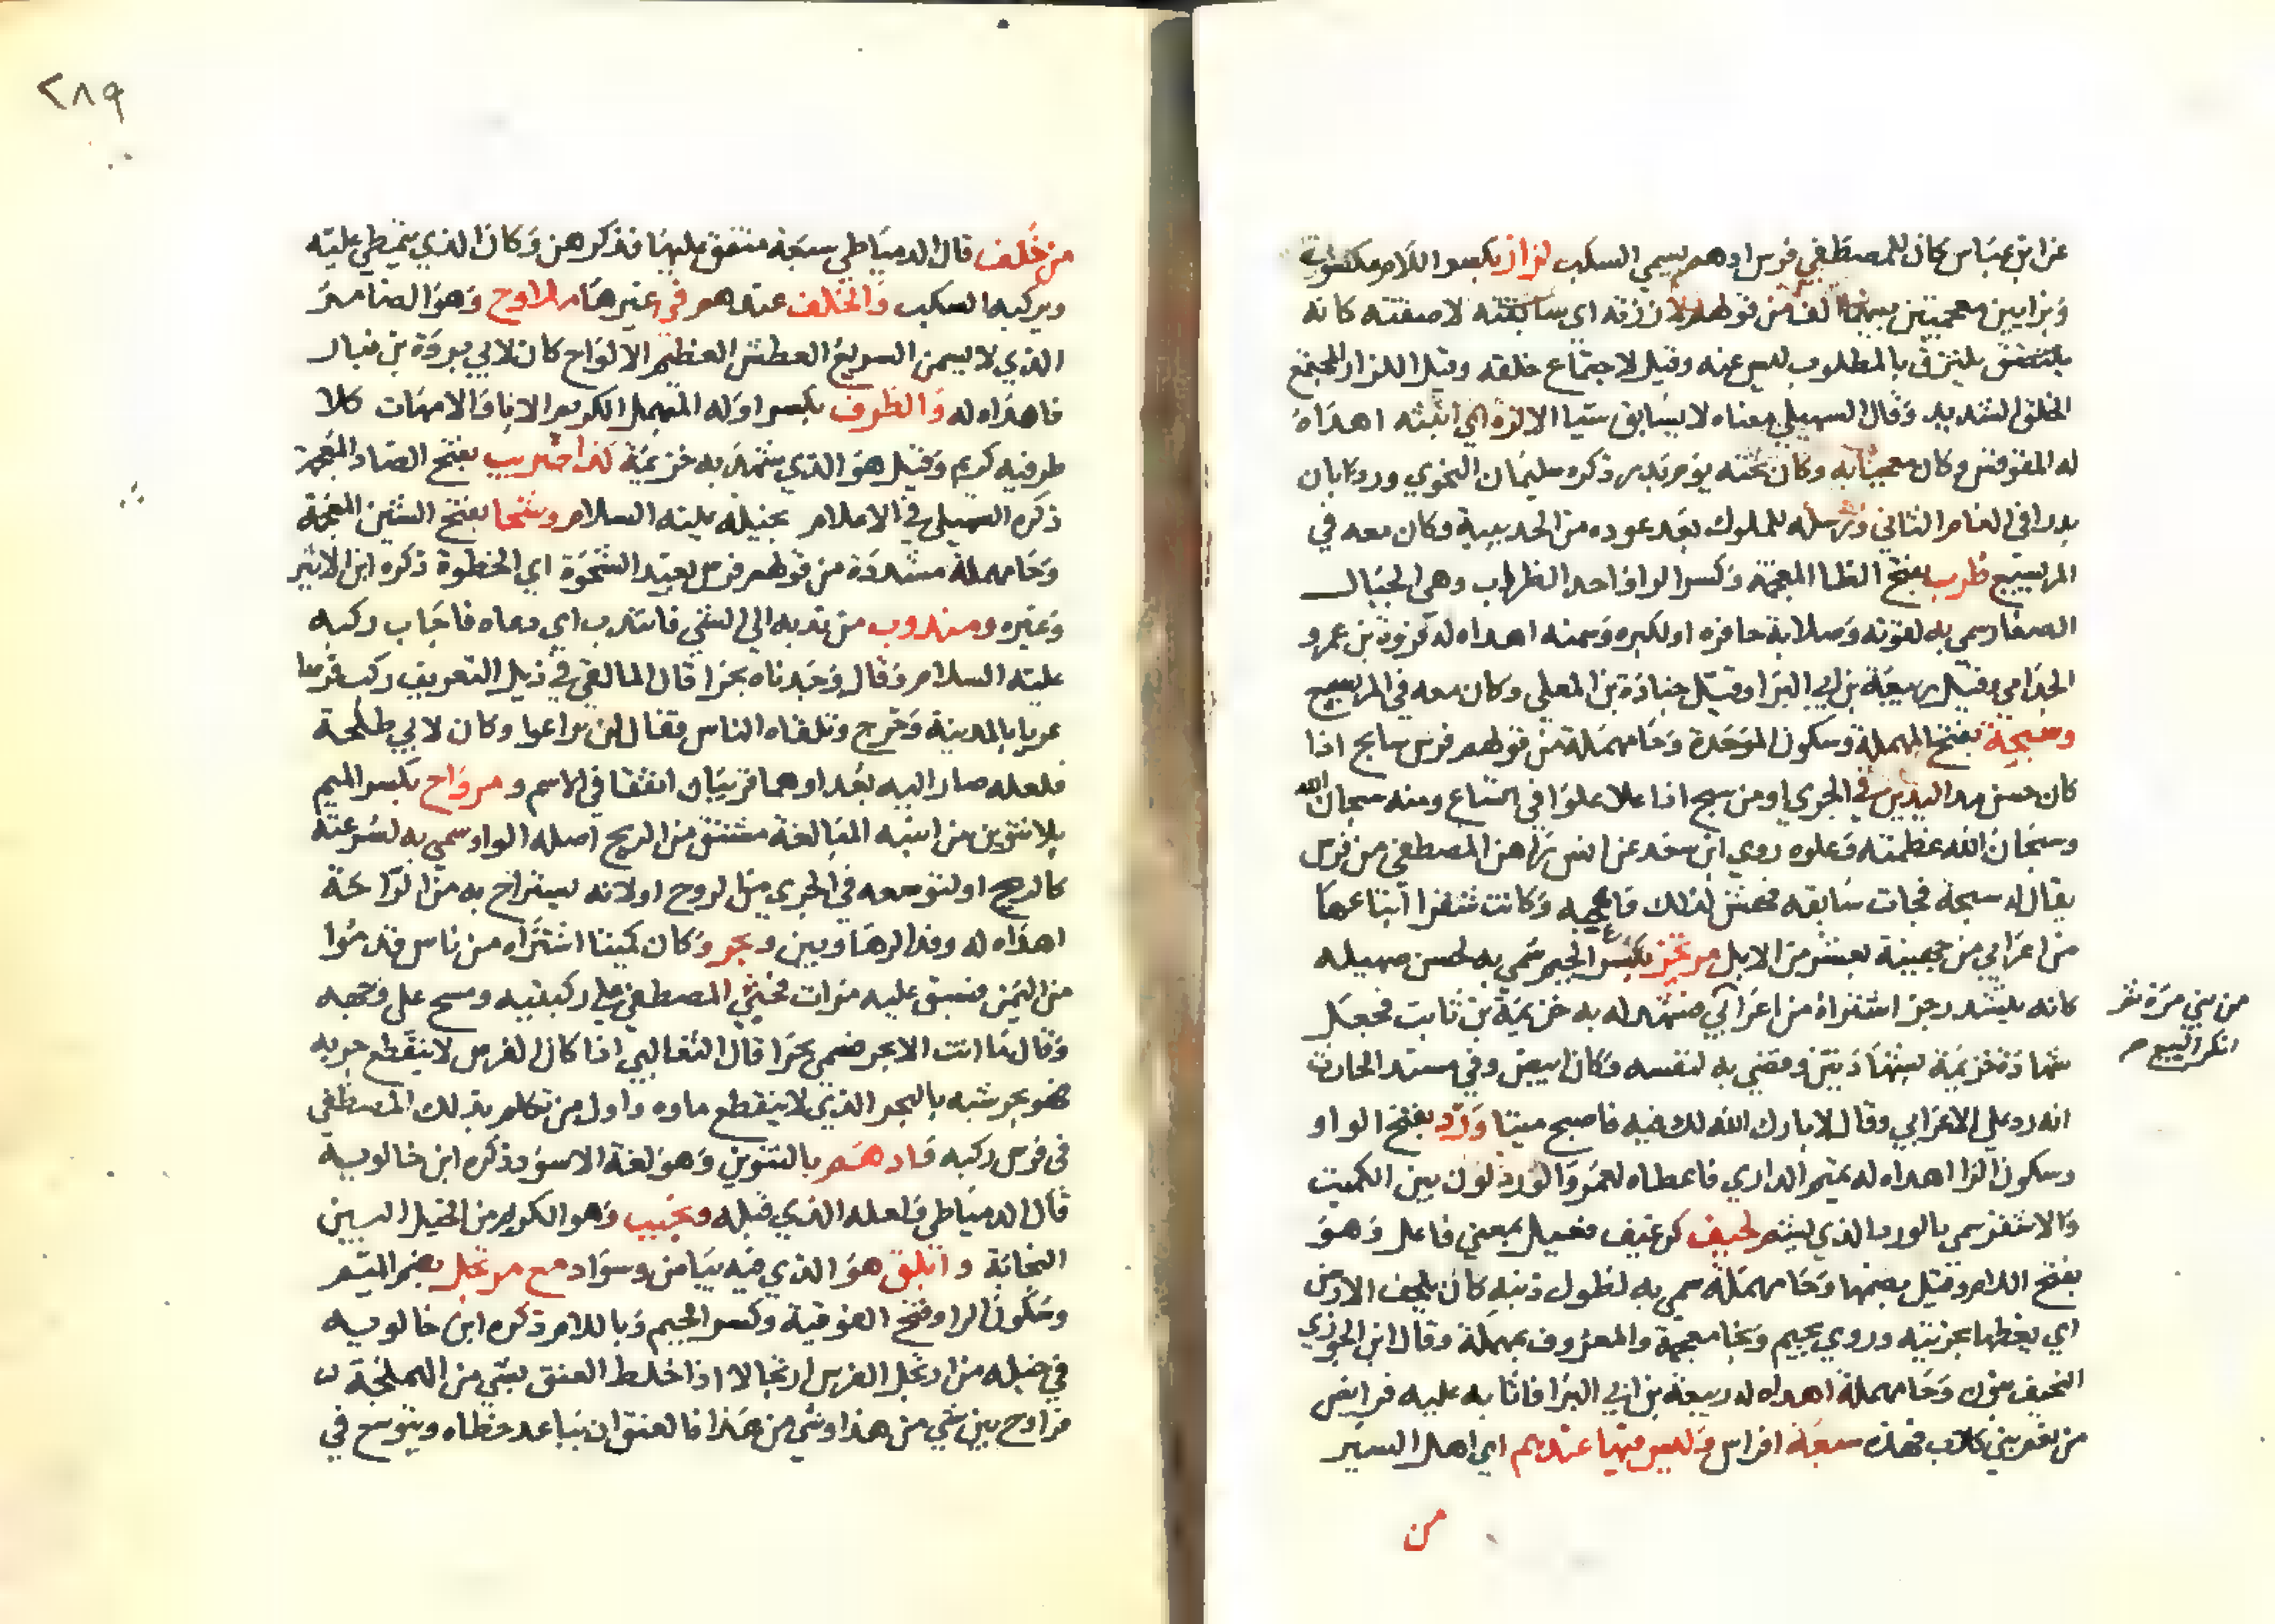 عن ابن عباس كان للمصطفى فرس ادهم يسمى السكب لزاز بكسر اللام مكسورة
وبزايين معجمتين بينهما الف من قولهم لاززته اي سابقته لاصقته كانه
يلتصق يلتزق بالمطلوب لسرعته وقيل لاجتماع خلقه وقيل اللزاز المجتمع
الخلق الشديد وقال السهيلي معناه لا يسابق شيا الا لزه اي اثبته اهداه
له المقوقس وكان معجبا به وكان تحته يوم بدر ذكره سليمان النحوي ورد بان
بدرا في العام الثاني ورسله للملوك بعد عوده من الحديبية وكان معه في
المريسيع ظرب بفتح الظا المعجمة وكسر الرا واحد الظراب وهي الجبال
الصغار سمي به لقوته وصلابة حافره او لكبره وسمنه اهداه له فروة بن عمرو
الجذامي وقيل ربيعة بن ابي البرا وقيل جنادة بن المعلى وكان معه في المريسيع
وسبحة بفتح المهملة وسكون الموحدة وحا مهملة من قولهم فرس سابح اذا
كان حسن مد اليدين في الجري او من سبح اذا علا علوا في اتساع ومنه سبحان الله
وسبحان الله عظمته وعلوه روى ابن سعد عن انس راهن المصطفى من فرس
يقال له سبحة فجات سابقه فهش لذلك فاعجبه وكانت شقرا ابتاعها
من اعرابي من جهينة بعشر من الابل مرتجز بكسر الجيم سمي به لحسن صهيله
كانه ينشد رجز اشتراه من اعرابي فشهد له به خزيمة بن ثابت فجعل
من بني مرة ثم
انكر البيع صح
شهادة خزيمة بشهادتين وقضي به لنفسه وكان ابيض وفي مسند الحارث
انه رد على الاعرابي وقال لا بارك الله لك فيه فاصبح ميتا ورد بفتح الواو
وسكون الرا اهداه له تميم الداري فاعطاه لعمر والورد لون بين الكميت
والاشقر سمي بالورد الذي يشم لحيف كرغيف فعيل بمعنى فاعل وهو
بفتح اللام وقيل بضمها وحا مهملة سمي به لطول ذنبه كان يلحف الارض
اي يغطيها بجريته وروي بجيم وبخا معجمة والمعروف بمهملة وقال ابن الجوزي
النحيف بنون وحا مهملة اهداه له ربيعة بن ابي البرا فاثابه عليه فرايض
من نعم بني كلاب فهذه سبعة افراس وليس فيها عندهم اي اهل السير
من
٢٨٩
من خلف قال الدمياطي سبعة متفق عليها فذكرهن وكان الذي يمتطي عليه
ويركبه السكب والخلف عندهم في غيرها ملاوح وهو الضامر
الذي لا يسمن السريع العطش العظيم الالواح كان لابي بردة بن نيار
فاهداه له والطرف بكسر اوله المهمل الكريم الابا والامهات كلا
طرفيه كريم وقيل هو الذي شهد به خزيمة كذا ضريب بفتح الضاد المعجمة
ذكره السهيلي في الاعلام بخيله عليه السلام وشحا بفتح الشين المعجمة
وحا مهملة مشددة من قولهم فرس بعيد الشحوة اي الخطوة ذكره ابن الاثير
وغيره ومندوب من ندبه الى الشي فانتدب اي دعاه فاجاب ركبه
عليه السلام وقال وجدناه بحرا قال المالقي في ذيل التعريف ركب فرسا
عريا بالمدينة وخرج وتلقاه الناس فقال لن تراعوا وكان لابي طلحة
فلعله صار اليه بعد او هما فرسان اتفقا في الاسم ومرواح بكسر الميم
بلا تنوين من ابنية المبالغة مشتق من الريح اصله الواو سمي به لسرعته
كالريح او لتوسعه في الجري من الروح او لانه يستراح به من الراحة
اهداه له وفد الرهاويين وبحر وكان كميتا اشتراه من ناس قدموا
من اليمن فسبق عليه مرات فجثى المصطفى على ركبتيه ومسح على وجهه
وقال ما انت الا بحر فسمي بحرا قال الثعالبي اذا كان الفرس لا ينقطع جريه
فهو بحر شبه بالبحر الذي لا ينقطع ماوه واول من تكلم بذلك المصطفى
في فرس ركبه فادهم بالتنوين وهو لغة الاسود ذكره ابن خالويه
قال الدمياطي ولعله الذي قبله ونجيب وهو الكريم من الخيل البين
النجابة وابلق هو الذي فيه بياض وسواد مع مرتجل بضم الميم
وسكون الرا وفتح الفوقية وكسر الجيم وباللام ذكره ابن خالويه
في خيله من ارتجل الفرس ارتجالا اذا خلط العنق بشي من الهملجة
فراوح بين شي من هذا وشي من هذا فالعنق ان يباعد خطاه ويتوسع في